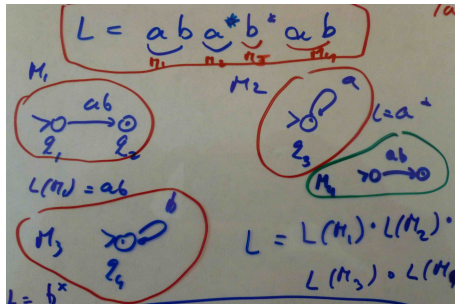 L = ab a* b* ab
M₁ M₂ M₃ M₄
M₁
ab
q₁ q₂
L(M₁) = ab
M2
a
q₃
L=a*
M₄
ab
M₃
b
q₄
L = b*
L = L(M₁) · L(M₂) ·
L(M₃) · L(M₄